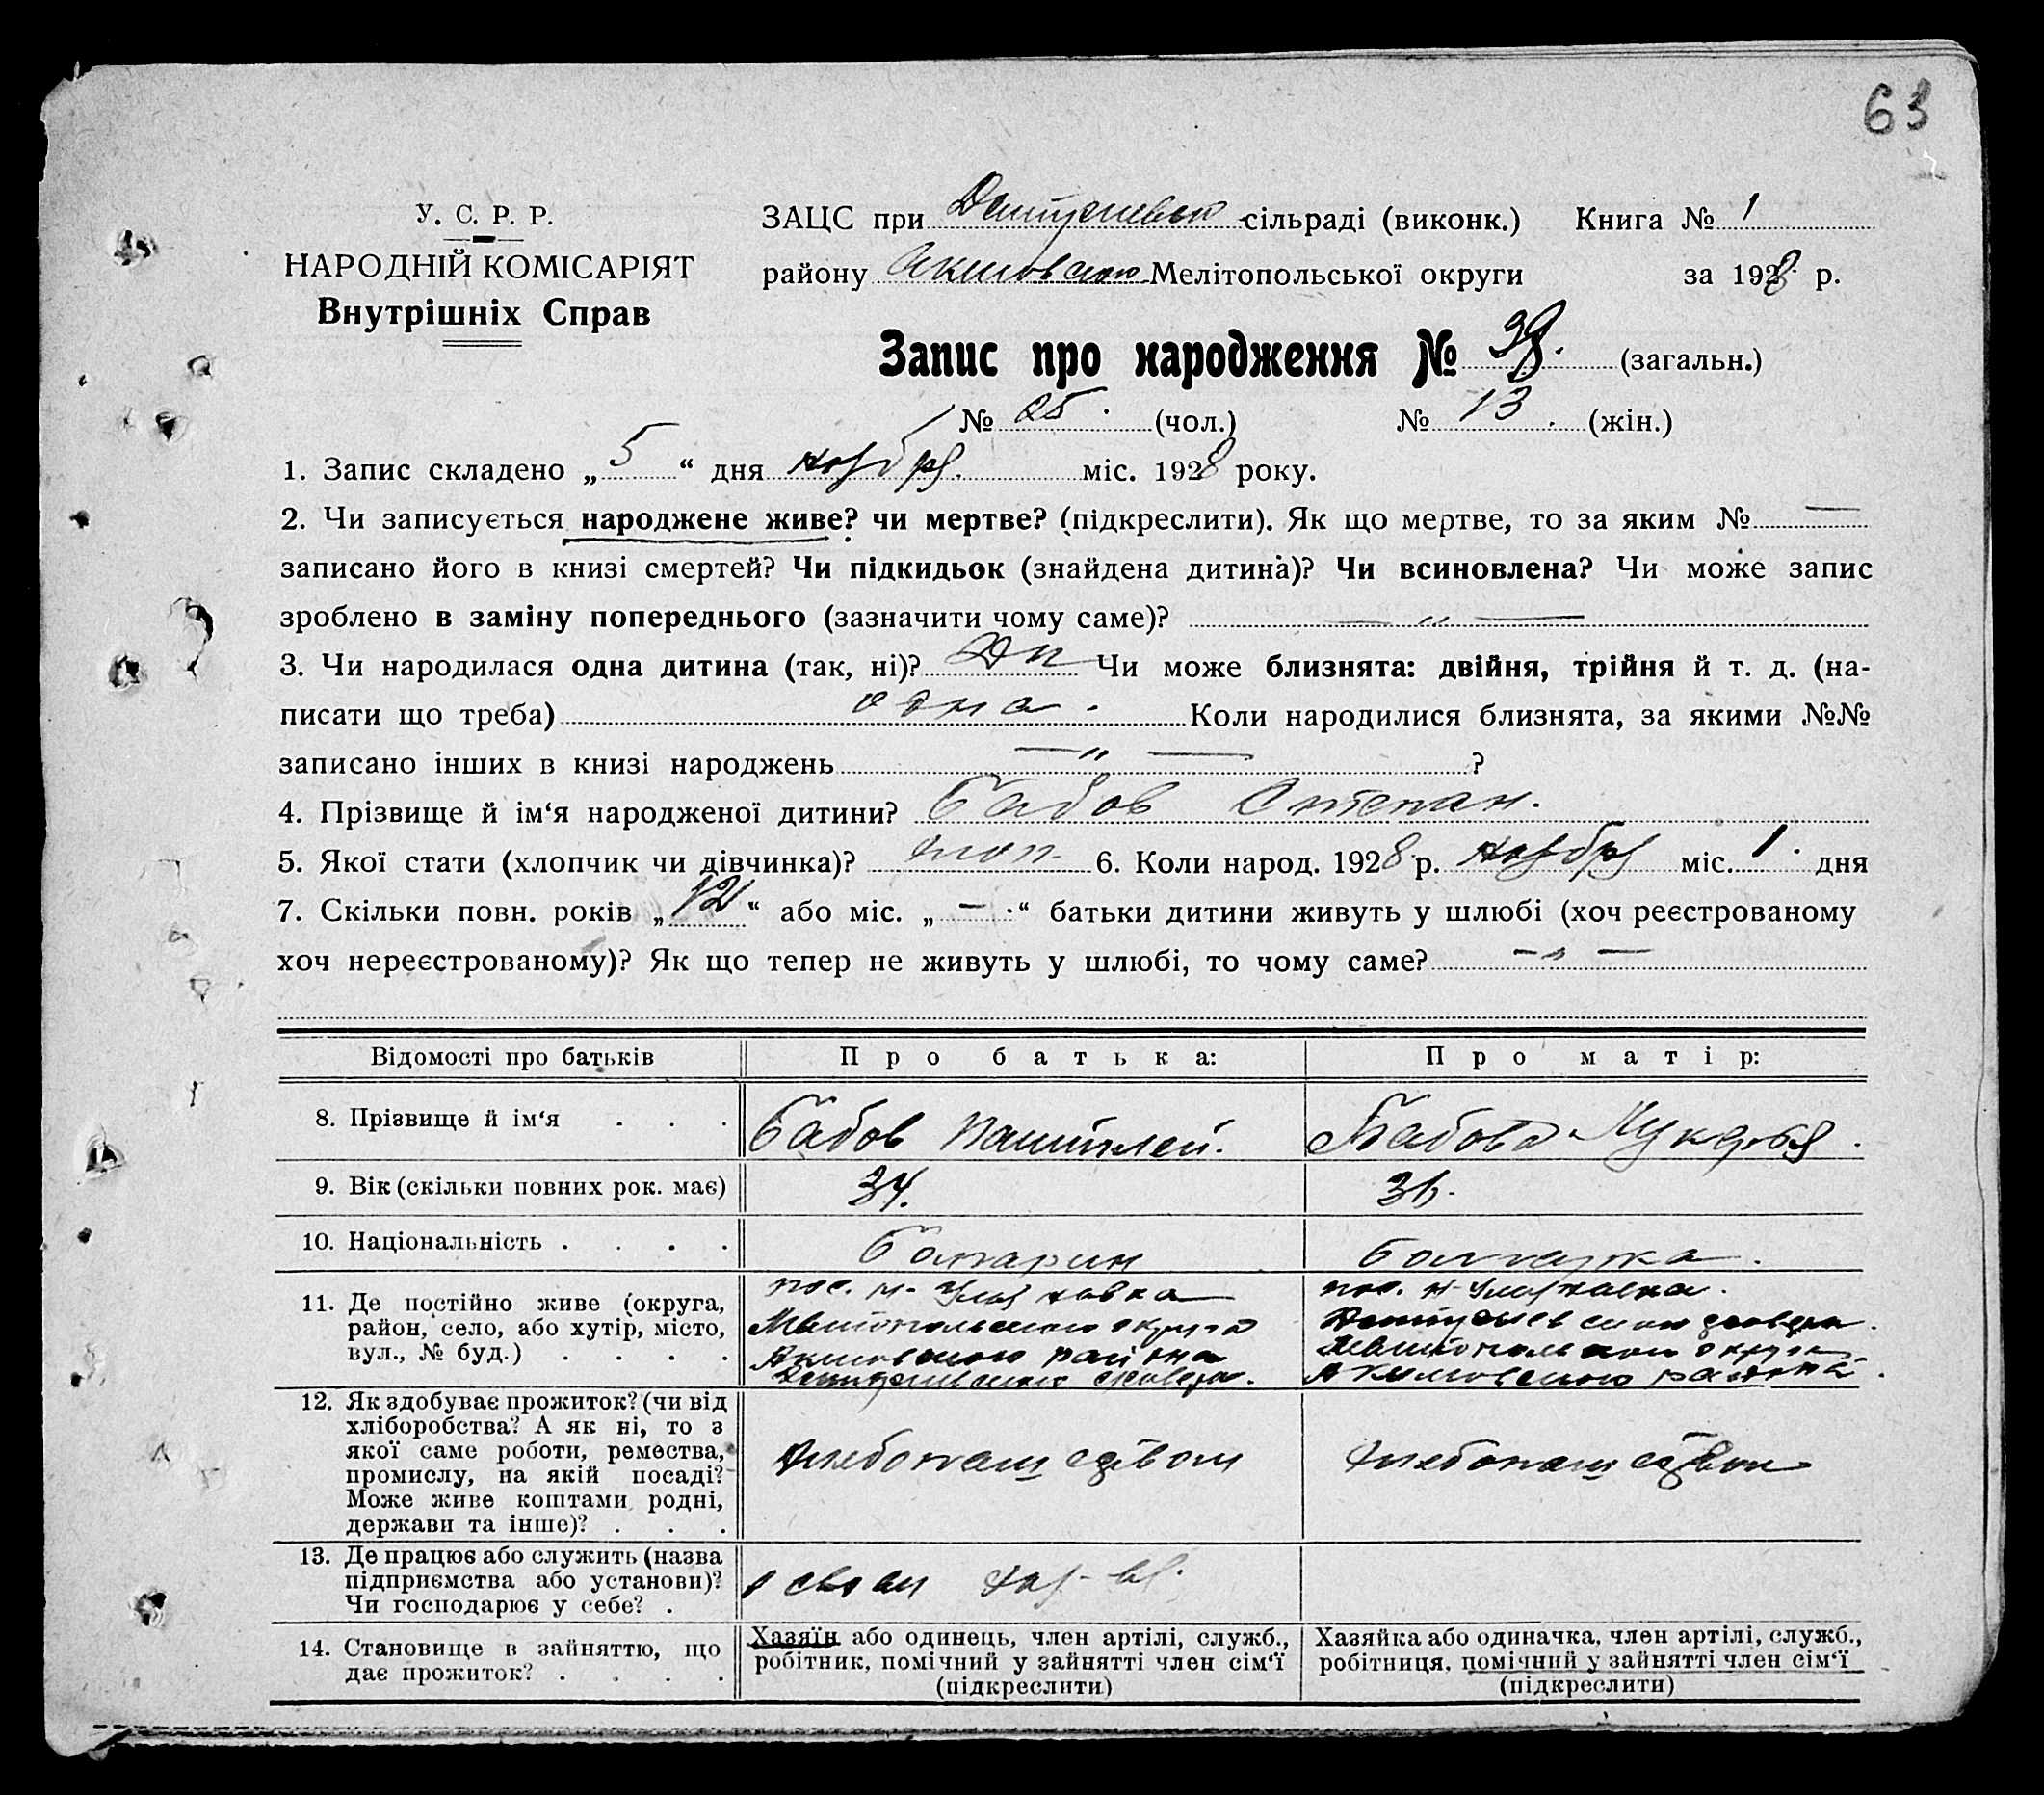 63
У. С. Р. Р.
НАРОДНІЙ КОМІСАРІЯТ
Внутрішніх Справ
ЗАЦС при сільраді (виконк.) Книга № 1
району Акимовского Мелітопольської округи за 1928 р.
Запис про народження № 38. (загальн.)
№ 25. (чол.) № 13. (жін.)
1. Запис складено „5“ дня ноября міс. 1928 року.
2. Чи записується народжене живе? чи мертве? (підкреслити). Як що мертве, то за яким № —
записано його в книзі смертей? Чи підкидьок (знайдена дитина)? Чи всиновлена? Чи може запис
зроблено в заміну попереднього (зазначити чому саме)? — „ —
3. Чи народилася одна дитина (так, ні)? Да Чи може близнята: двійня, трійня й т. д. (на-
писати що треба) одна. Коли народилися близнята, за якими №№
записано інших в книзі народжень — „ — ?
4. Прізвище й ім‘я народженої дитини? Бабов Степан.
5. Якої стати (хлопчик чи дівчинка)? 6. Коли народ. 1928 р. ноября міс. 1. дня
7. Скільки повн. років „12“ або міс. „—“ батьки дитини живуть у шлюбі (хоч реєстрованому
хоч нереєстрованому)? Як що тепер не живуть у шлюбі, то чому саме? — „ —
Відомості про батьків Про батька: Про матір:
8. Прізвище й ім‘я . . . Бабов Пантилей. Бабова Лукерья.
9. Вік (скільки повних рок. має) 34. 36.
10. Національність . . . . Болгарин Болгарка.
11. Де постійно живе (округа,
район, село, або хутір, місто,
вул., № буд.) . . . .
пос.
Мелитопольского округа
Акимовского района
пос.
Мелитопольского округа
Акимовского района.
12. Як здобуває прожиток? (чи від
хліборобства? А як ні, то з
якої саме роботи, ремества,
промислу, на якій посаді?
Може живе коштами родні,
держави та інше)? . . .
Хлебопашеством
Хлебопашеством
13. Де працює або служить (назва
підприємства або установи)?
Чи господарює у себе? .
в своем хоз-ве.
14. Становище в зайняттю, що
дає прожиток? . . . .
Хазяїн або одинець, член артілі, служб.,
робітник, помічний у зайнятті член сім‘ї
(підкреслити)
Хазяйка або одиначка, член артілі, служб.,
робітниця, помічний у зайнятті член сім‘ї
(підкреслити)